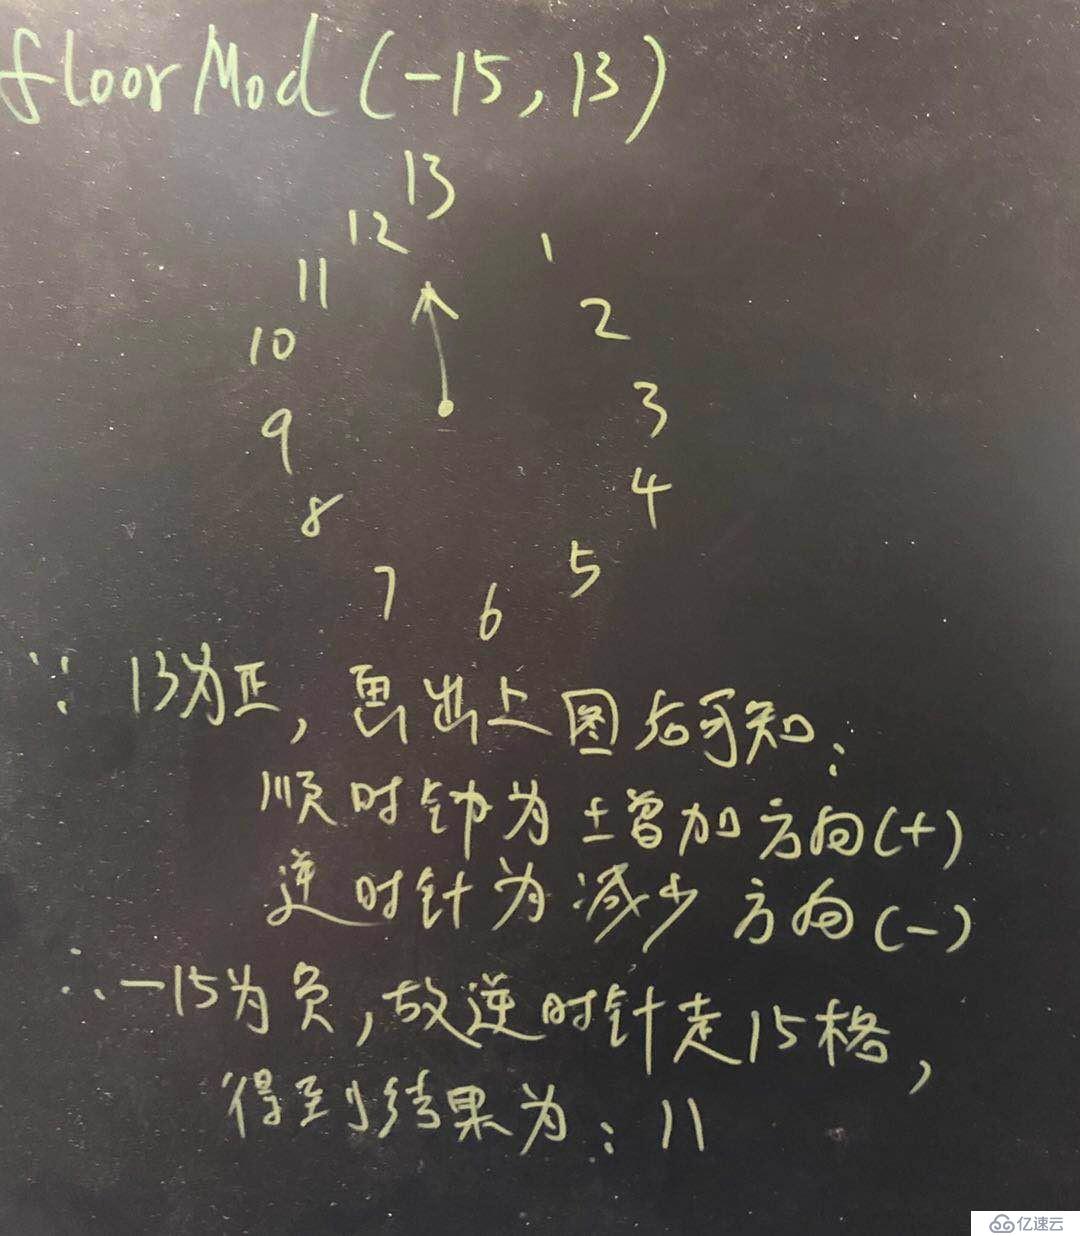 floorMod(-15,13)
13
12
1
11
2
10
3
9
4
8
5
7
6
∵ 13为正,画出上图后可知:
顺时针为增加方向(+)
逆时针为减少方向(-)
∴ -15为负,故逆时针走15格,
得到结果为:11
亿速云